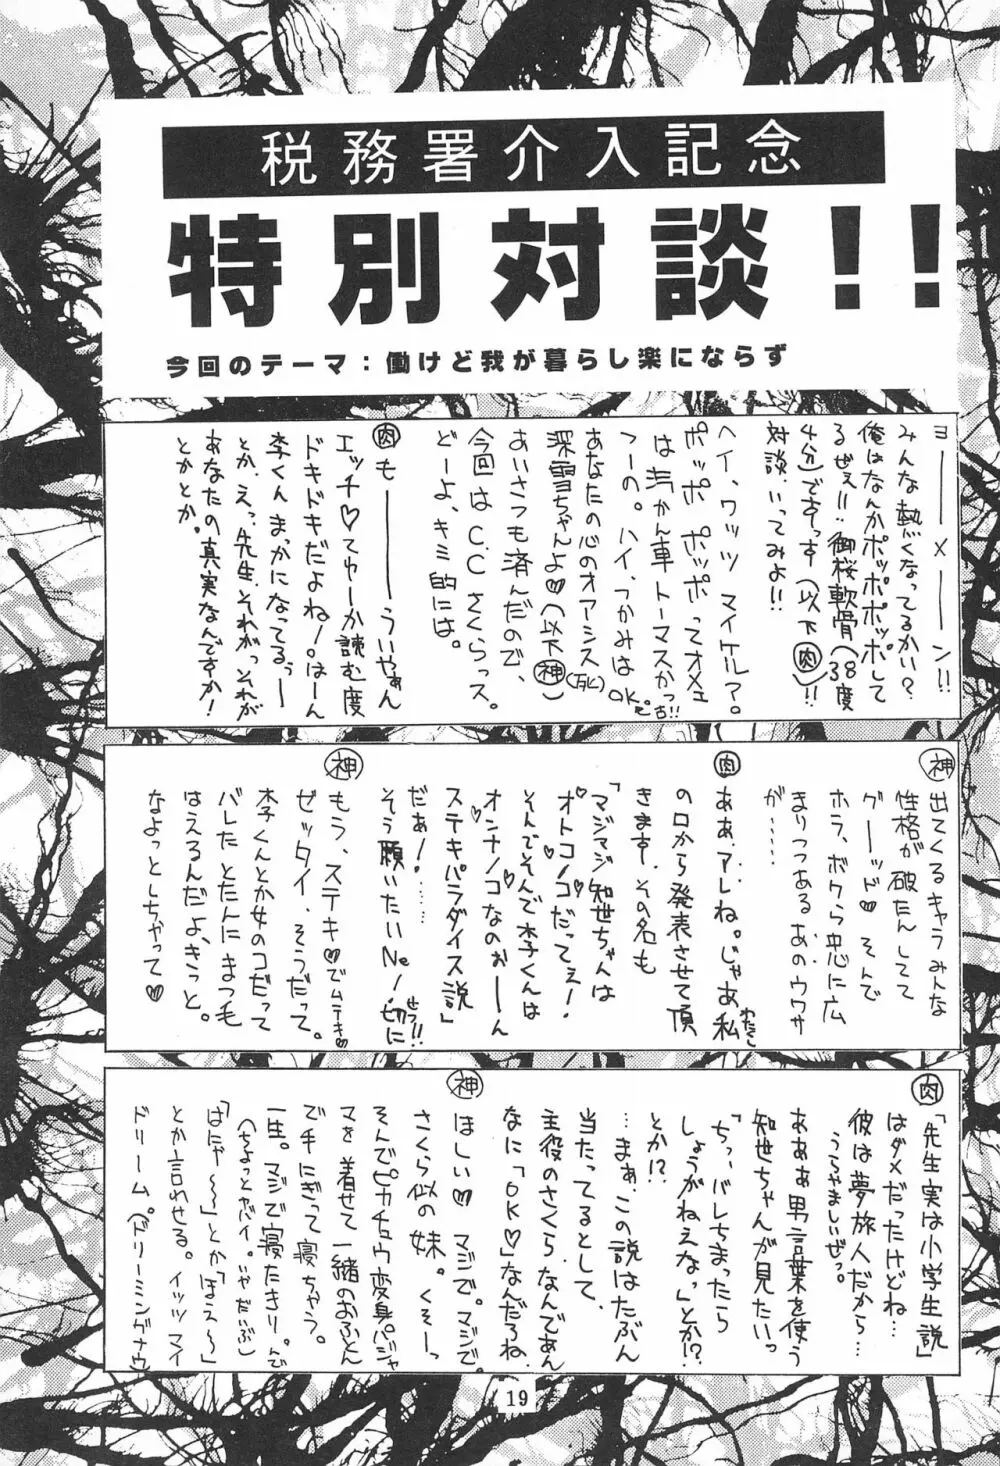 税務署介入記念
特別対談!!
今回のテーマ：働けど我が暮らし楽にならず
ヨーーメーーン!!
みんな熱くなってるかい？
俺はなんかポッポポッポして
るぜぇ!!‥御桜軟骨(38度
4分)ですっす(以下肉)!!
対談‥いってみよ!!
ヘイ、ワッツ マイケル？。
ポッポ ポッポってオメェ
は汽かん車トーマスかっ!!
つーの。ハイ、つかみはOK。
あなたの心のオアシス
深雪ちゃんよ♡(以下神)
あいさつも済んだので、
今回はC.Cさくらっス。
どーよ、キミ的には。
肉も――ういやぁん
エッチ♡てゅーか読む度
ドキドキだよね!はーん
李くんまっかになってるぅー
とか、えっ、先生、それがっそれが
あなたの真実なんですか!
とかとか。
神出てくるキャラみんな
性格が破たんしてて
グーッド♡そんで
ホラ、ボクら忠に広
まりつつあるあのウワサ
が……
肉ああ、アレね。じゃあ、私
わたくし
の口から発表させて頂
きます、その名も
「マジマジ知世ちゃんは
オトコノコだってぇ!
そんでそんで李くんは
オンナノコなのぉーーん
ステキパラダイス説」
だぁ!……
そう願いたいNe!切に
せつ!!
神もう、ステキ♡でムテキ♡
ゼッタイ、そうだって。
李くんとか女のコだって
バレたとたんにまつ毛
はえるんだよ、きっと。
なよっとしちゃって♡
肉「先生実は小学生説」
はダメだったけどね…
彼は夢旅人だから…
うらやましいぜっ。
あああ男言葉を使う
知世ちゃんが見たいっ
「ちっ、バレちまったら
しょうがねえなっ」とか!?
とか!?
…まぁ、この説はたぶん
当たってるとして、
主役のさくら、なんであん
なに「OK♡」なんだろね、
神ほしい♡マジで。マジで。
さくら似の妹。くそーっ
そんでピカチュウ変身パジャ
マを着せて一緒のおふとん
で手にぎって寝ちゃう。
一生。マジで寝たきり。んで
(ちょっとヤバイ。いやだいぶ)
「はにゃ～～」とか「ほえ～～」
とか言わせる。イッツマイ
ドリーム。(ドリーミングナウ)
19